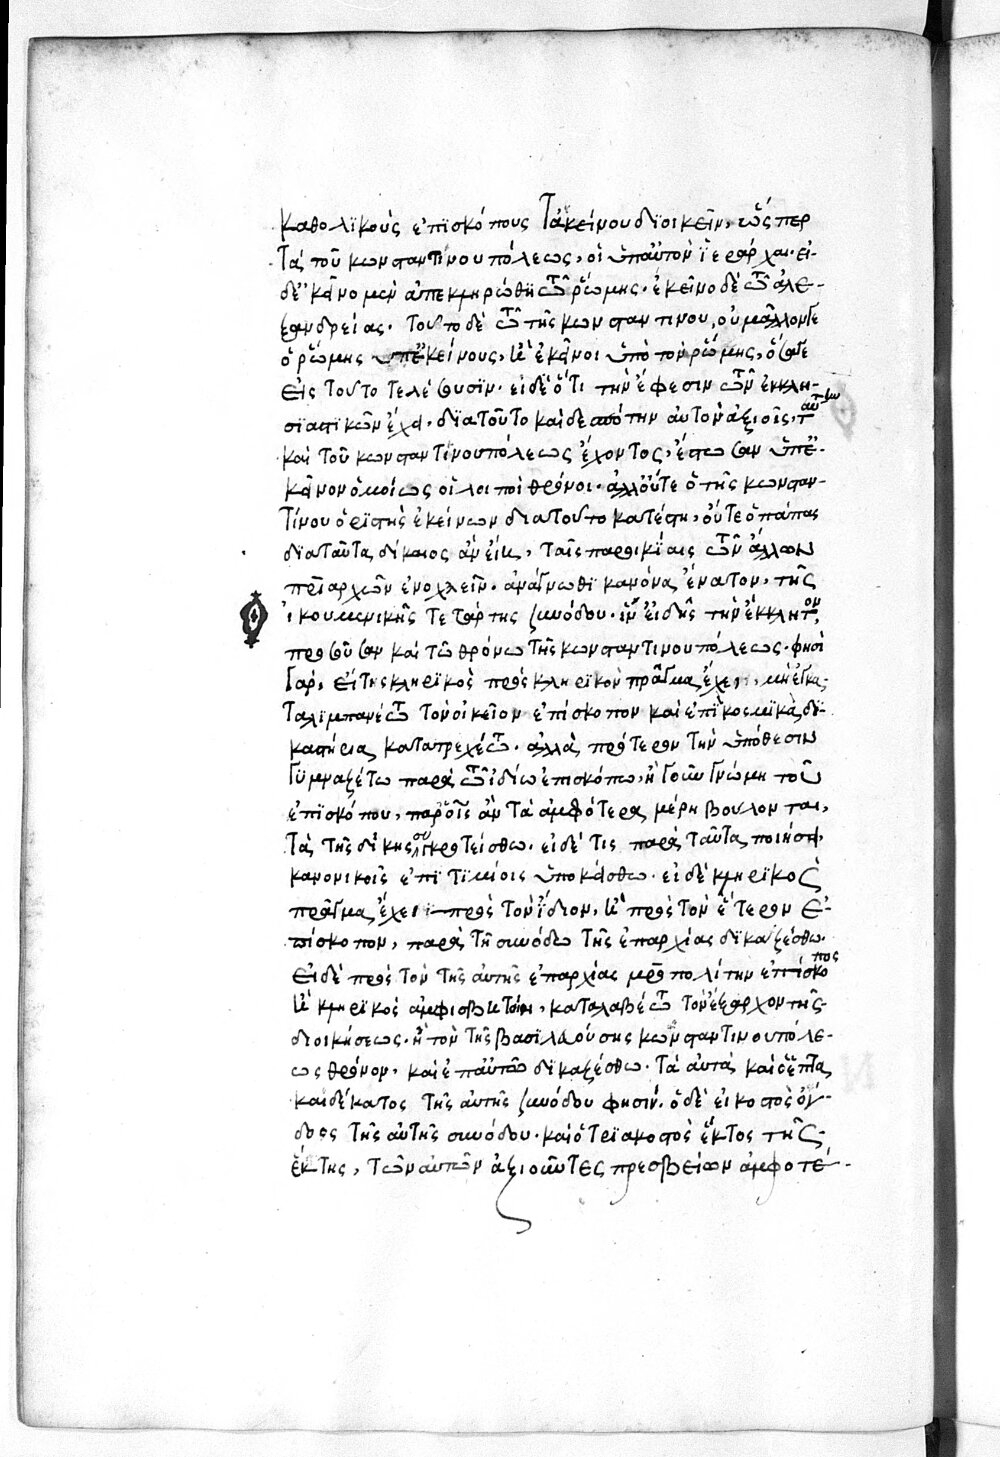 καθολϊκοὺς ἐπϊσκόπους Τἀκείνου δϊοικεῖν, ὥσπερ
τὰ τοῦ κωνσταντίνου πόλεως, οἱ ὑπαὐτὸν ϊεράρχαι· εἰ
δὲ κεῖνο μὲν ἀπεκληρώθη τῶ ῥώμης· ἐκεῖνο δὲ τῶ ἀλε-
ξανδρείας· τοῦτο δὲ τῶ τῆς κωνσταντίνου, οὐ μᾶλλόν γε
ὁ ῥώμης ὑπἐκείνους, ἢ ἐκεῖνοι ὑπὸ τὸν ῥώμης, ὅσα γε
εἰς τοῦτο τελέσουσϊν· εἰ δὲ ὅτι τὴν ἔφεσιν τῶν ἐκκλη-
σϊαστϊκῶν ἔχει, δϊατοῦτο καὶ δεσπότην αὐτὸν ἀξιοῖς, τ αὐτὴν
καὶ τοῦ κωνσταντίνουπόλεως ἔχοντος, ἔστωσαν ὑπἐ-
κεῖνον ὁμοίως οἱ λοιποὶ θρόνοι· ἀλλοὔτε ὁ τῆς κωνσταν-
τίνου ὁρϊστὴς ἐκείνων διατοῦτο κατέστη, οὔτε ὁ πάπας
διαταῦτα δίκαιος ἂν εἴη, ταῖς παροικΐαις τῶν ἄλλων
πρϊαρχῶν ἐνοχλεῖν· ἀνάγνωθϊ κανόνα ἔνατον, τῆς
οἰκουμενικῆς τετάρτης συνόδου· ἵν εἰδῇς τὴν ἔκκλητον,
προσοῦσαν καὶ τῶ θρόνω τῆς κωνσταντίνουπόλεως· φησὶ
γάρ, εἴ τις κληρϊκὸς πρὸς κληρϊκὸν πρᾶγμα ἔχει, μὴ ἐγκα-
ταλϊμπανέτω τὸν οἰκεῖον ἐπίσκοπον καὶ ἐπὶ κοσμϊκὰ δι-
καστήρια κατατρεχέτω· ἀλλὰ πρότερον τὴν ὑπόθεσιν
γϋμναζέτω παρὰ τῶ ἰδίω ἐπισκόπω, ἢ γοῦν γνώμη τοῦ
ἐπϊσκόπου, παροἷς ἂν τὰ ἀμφότερα μέρη βούλονται,
τὰ τῆς δίκης συγκροτείσθω· εἰ δέ τις παρὰ ταῦτα ποιήσει,
κανονικοῖς ἐπϊτϊμίοις ὑποκείσθω· εἰ δὲ κληρϊκὸς
πρᾶγμα ἔχει πρὸς τὸν ἴδιον, ἢ πρὸς τὸν ἕτερον ἐ-
πίσκοπον, παρὰ τῆ συνόδω τῆς ἐπαρχίας δϊκαζέσθω·
εἰ δὲ πρὸς τὸν τῆς αὐτῆς ἐπαρχίας μρο̄πολίτην ἐπίσκοπος
ἢ κληρϊκὸς ἀμφισβητοίη, καταλαβέτω τὸν ἔξαρχον τῆς
διοικήσεως, ἢ τὸν τῆς βασϊλευούσης κωνσταντινουπόλε-
ως θρόνον, καὶ ἐπαὐτῶ δϊκαζέσθω· τὰ αὐτὰ καὶ ὁ ἕπτα
καιδέκατος τῆς αὐτῆς συνόδου φησίν· ὁ δὲ εἰκοστὸς ὄγ-
δοος τῆς αὐτῆς συνόδου· καὶ ὁ τρϊακοστὸς ἕκτος τῆς
ἕκτης, τῶν αὐτῶν ἀξιοῦντες πρεσβείων ἀμφοτέ-